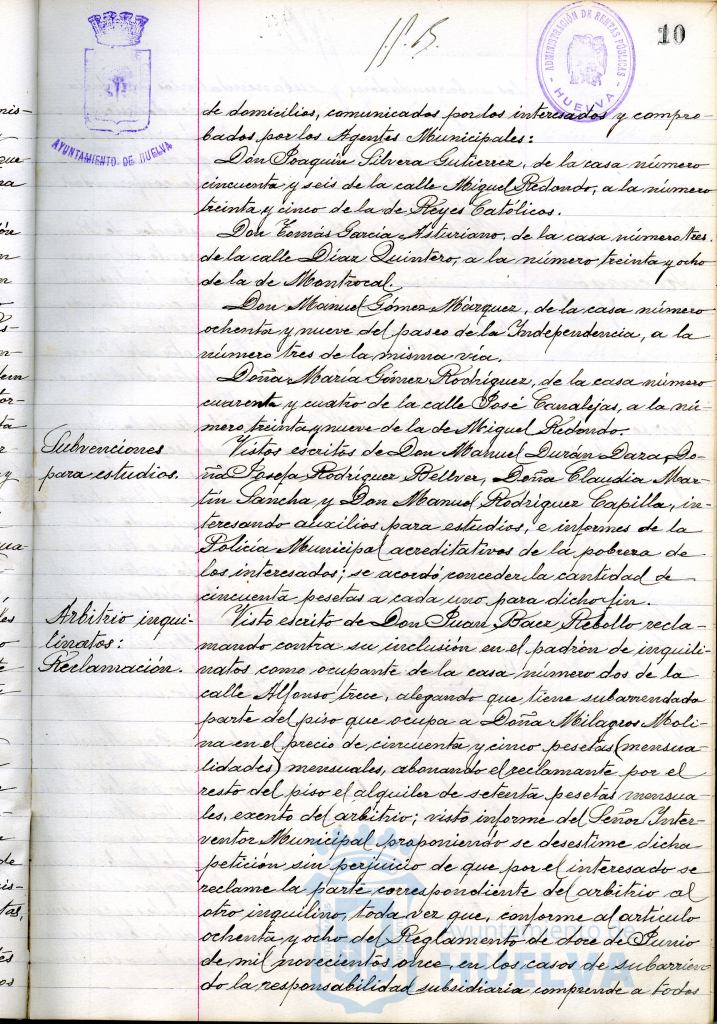 10
AYUNTAMIENTO DE HUELVA
ADMINISTRACIÓN DE RENTAS PÚBLICAS
HUELVA
de domicilios, comunicados por los interesados y compro-
bados por los Agentes Municipales:
Don Joaquín Silvera Gutierrez, de la casa número
cincuenta y seis de la calle Miguel Redondo, a la número
treinta y cinco de la de Reyes Católicos.
Don Tomás García Asturiano, de la casa número tres
de la calle Díaz Quintero, a la número treinta y ocho
de la de Montrocal.
Don Manuel Gómez Márquez, de la casa número
ochenta y nueve del paseo de la Independencia, a la
número tres de la misma vía.
Doña María Gómez Rodríguez, de la casa número
cuarenta y cuatro de la calle José Canalejas, a la nú-
mero treinta y nueve de la de Miguel Redondo.
Subvenciones
para estudios.
Vistos escritos de Don Manuel Durán Daza, Do-
ña Josefa Rodríguez Bellver, Doña Claudia Mar-
tín Sancha y Don Manuel Rodríguez Capilla, in-
teresando auxilios para estudios, e informes de la
Policía Municipal acreditativos de la pobreza de
los interesados; se acordó conceder la cantidad de
cincuenta pesetas a cada uno para dicho fin.
Arbitrio inqui-
linatos:
Reclamación.
Visto escrito de Don Juan Baez Rebollo recla-
mando contra su inclusión en el padrón de inquili-
natos como ocupante de la casa número dos de la
calle Alfonso trece, alegando que tiene subarrendada
parte del piso que ocupa a Doña Milagros Moli-
na en el precio de cincuenta y cinco pesetas (mensua-
lidades) mensuales, abonando el reclamante por el
resto del piso el alquiler de setenta pesetas mensua-
les, exento del arbitrio; visto informe del Señor Inter-
ventor Municipal proponiendo se desestime dicha
petición sin perjuicio de que por el interesado se
reclame la parte correspondiente del arbitrio al
otro inquilino, toda vez que, conforme al artículo
ochenta y ocho del Reglamento de doce de Junio
de mil novecientos once, en los casos de subarrien-
do la responsabilidad subsidiaria comprende a todos
Ayuntamiento de
HUELVA